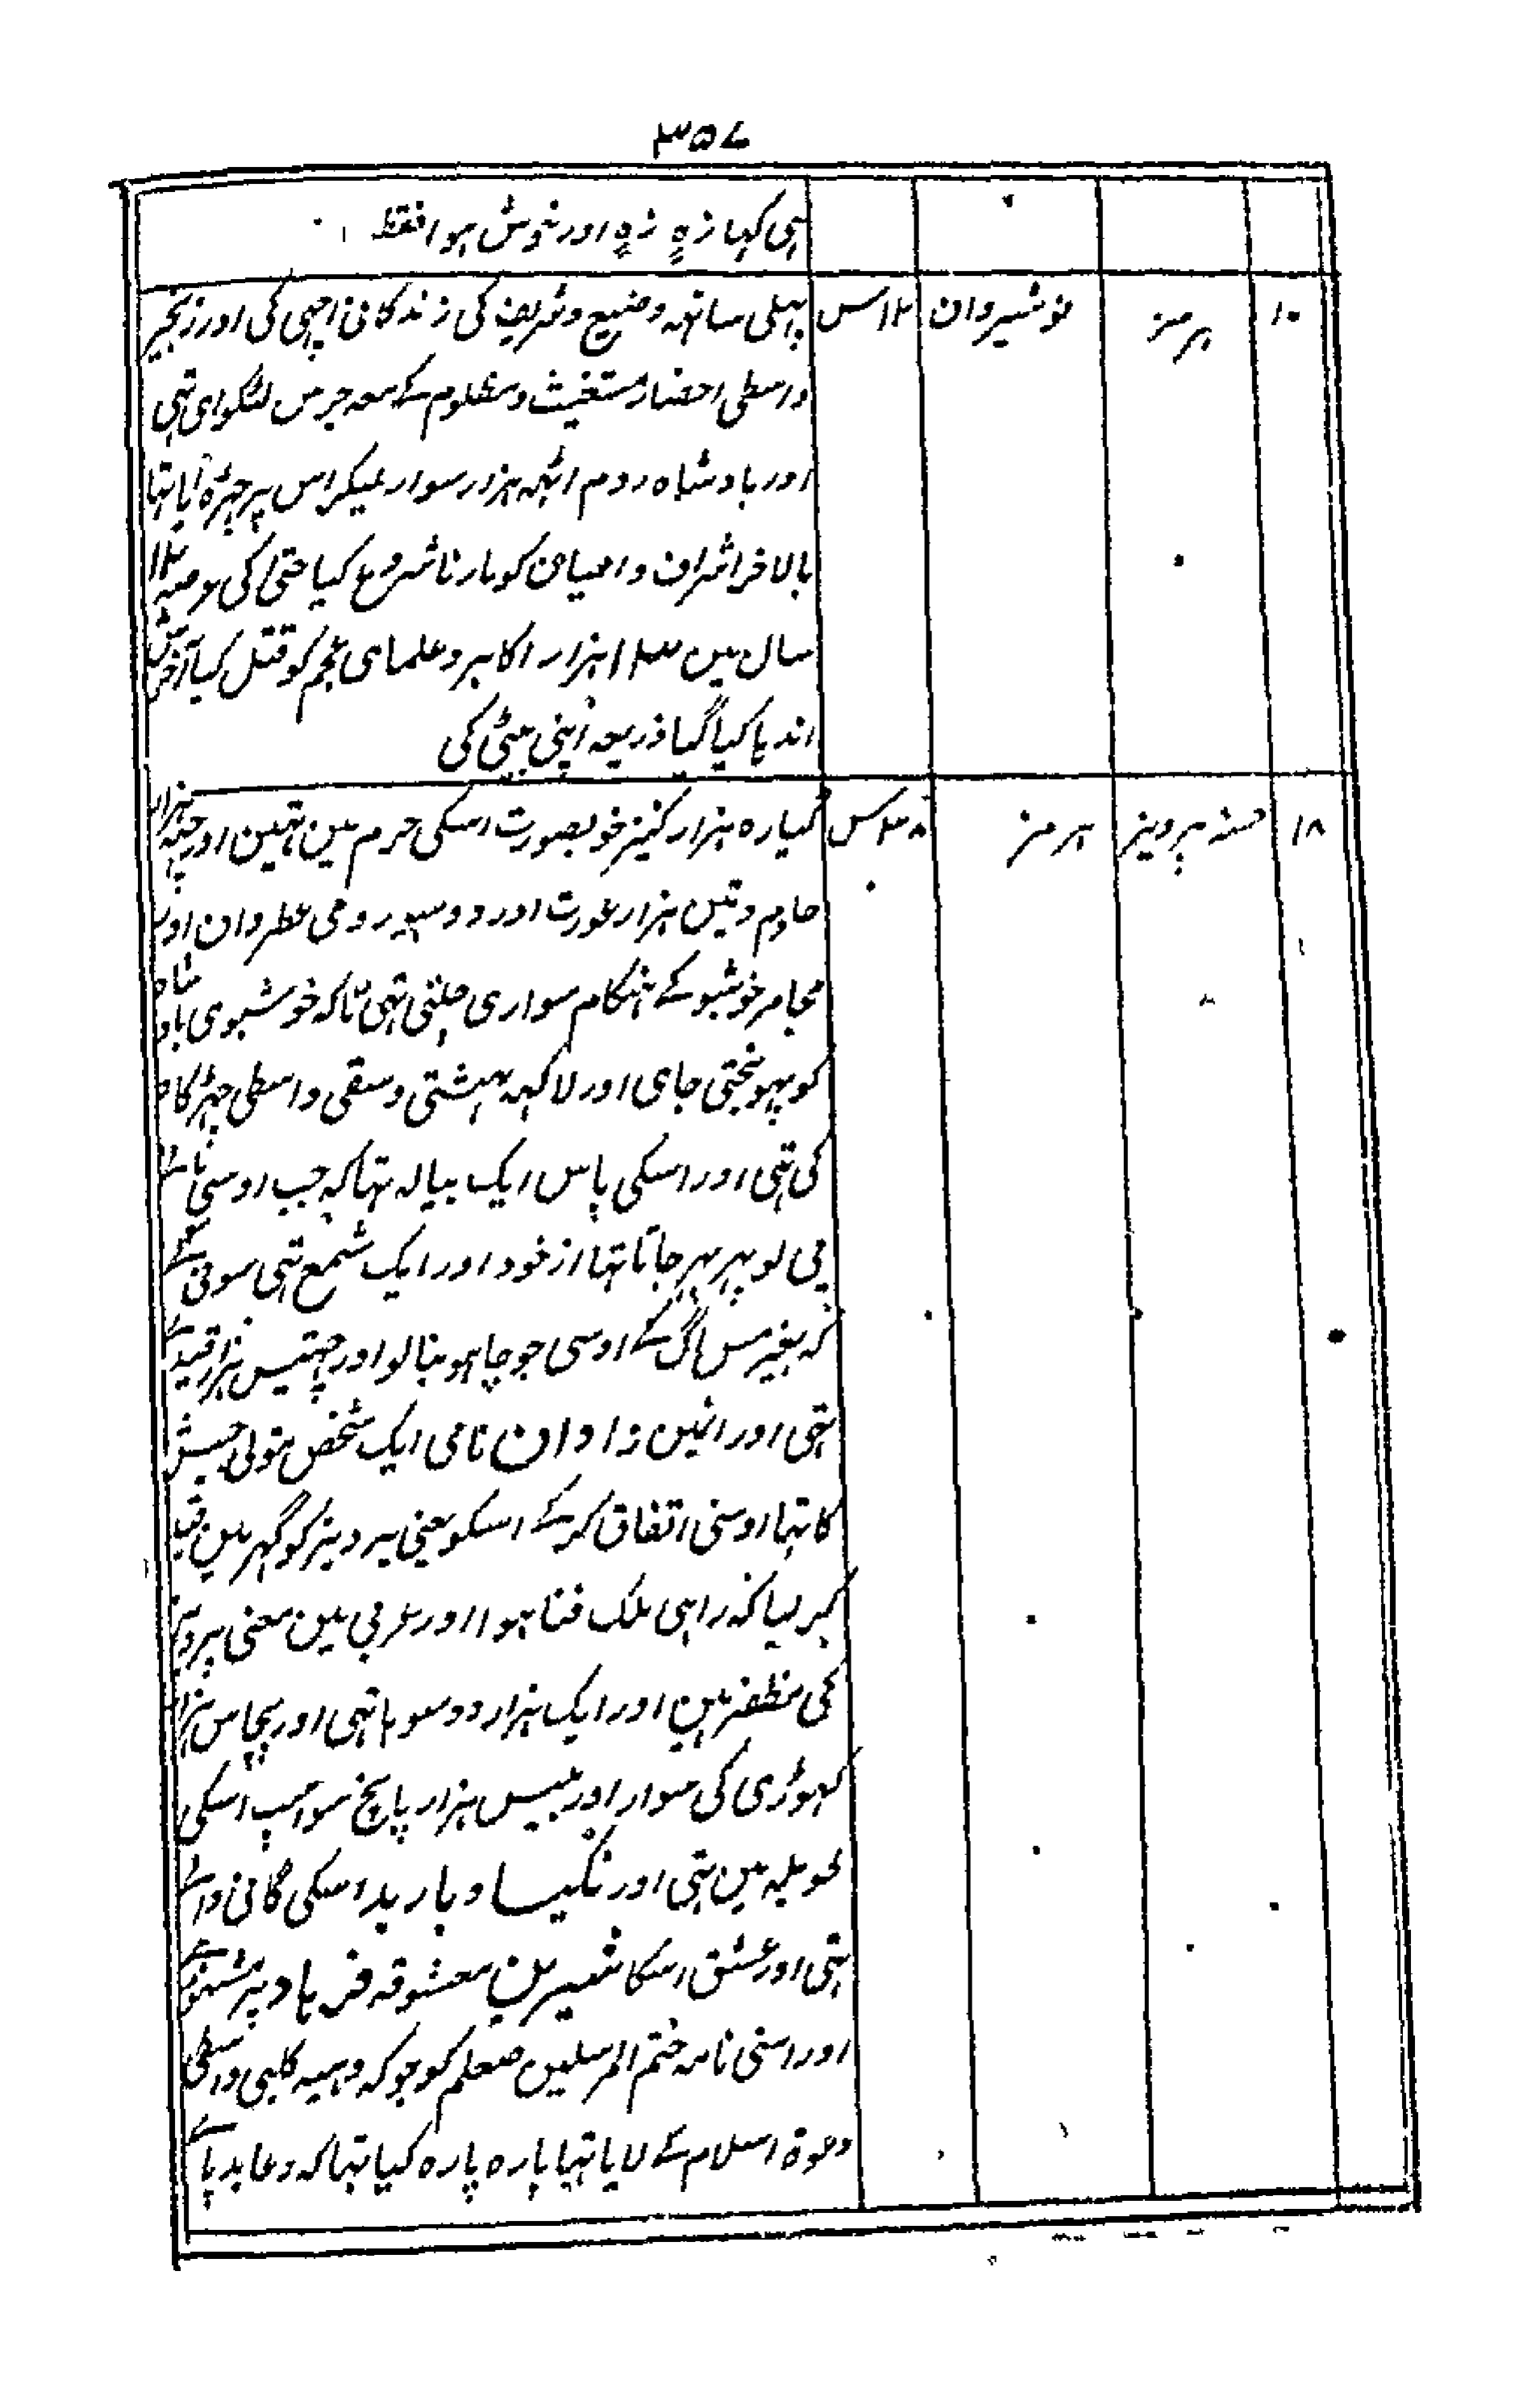 ۳۵۷
ہی کہا زہ زہ اور خوش ہوا فقط
۱۰ ہرمز نوشیروان ۱۲س پہلی ساتھہ وضیع و شریف کی زندکانی اچہی کی اور زنجیر
واسطی احضار مستغیث و مظلوم کے معہ جرس لٹکوای تہی
اور بادشاہ روم اٹہہ ہزار سوار لیکر اس پر چڑہ آیا تہا
بالاخر اشراف و اعیان کو مارنا شروع کیا حتی کی عرصہ ۱۲
سال مین ۱۳ ہزار اکابر و علمای عجم کو قتل کیا آخرش
اندہا کیا گیا ذریعہ اپنی بیٹی کی
۱۸ خسرو پرویز ہرمز ۳۸س گیارہ ہزار کنیز خوبصورت اسکی حرم مین تہین اور چہہ ہزار
خادم و تین ہزار عورت اور دو سپہر رومی عطر دان اور
مجامر خوشبو کے ہنکام سواری چلتی تہی تاکہ خوشبوی بادشاہ
کو پہونچتی جای اور لاکہہ بہشتی و سقی واسطی چہڑکاو
کی تہی اور اسکی پاس ایک پیالہ تہا کہ جب اوسی
پی لو پہر بہر جاتا تہا از خود اور ایک شمع تہی سونی کے
کہ بغیر مس آگ کے اوسی جو چاہو بنا لو اور چہتیس ہزار قیدی
تہی اور انہین زادان نامی ایک شخص متولی حبس
کا تہا اوسنی اتفاق کر کے اسکو یعنی پرویز کو گہر مین قید
کر لیا کہ راہی ملک فنا ہوا اور عربی مین معنی پرویز
کی مظفر ہین اور ایک ہزار دو سو ہاتہی اور پچاس ہزار
گہوڑی کی سوار اور بیس ہزار پانچ سو اسپ اسکی
طویلہ مین تہی اور نکیسا و باربد اسکی گانی والے
تہی اور عشق اسکا شیرین معشوقہ فرہاد پر مشہور ہے
اور اسنی نامہ ختم المرسلین صعلم کو جو کہ وہیہ کلبی واسطی
دعوۃ اسلام کے لایا تہا پارہ پارہ کیا تہا کہ دعا بد پاے